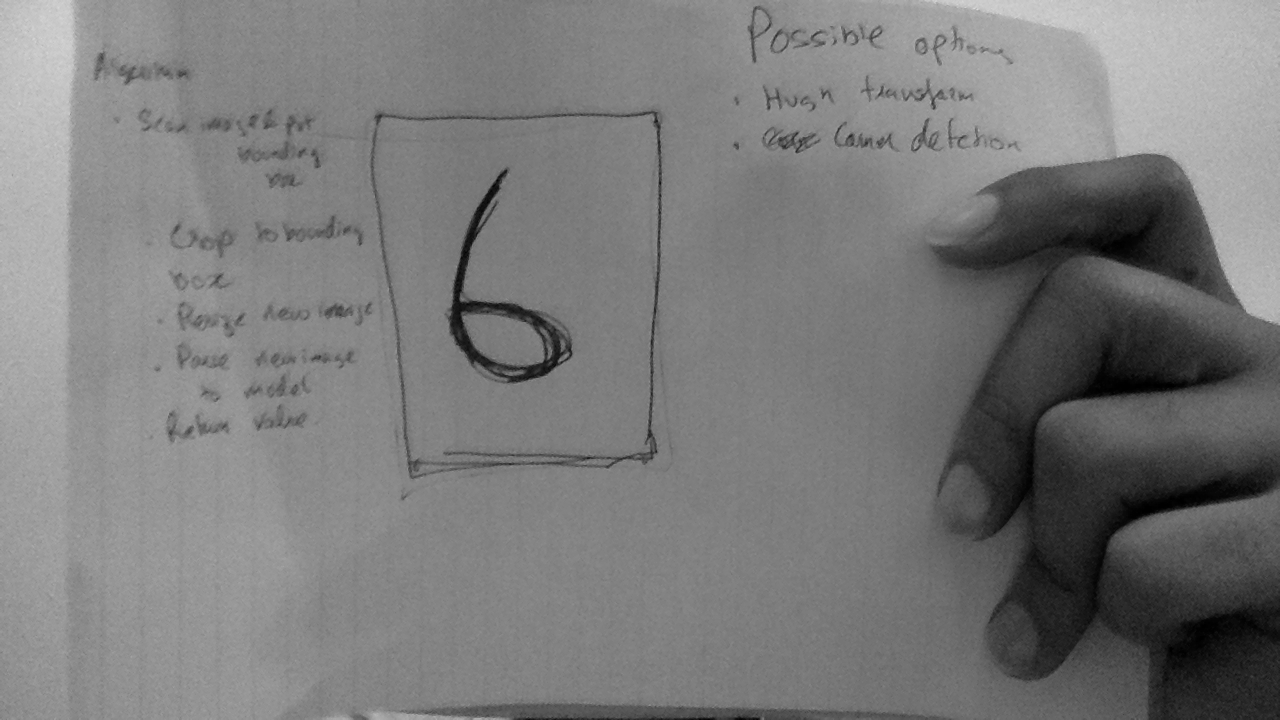 Algorithm
· Scan image & put
bounding
box
· Crop to bounding
box
· Resize new image
· Parse new image
to model
· Return value
6
Possible options
· Hugh transform
· Cann detction